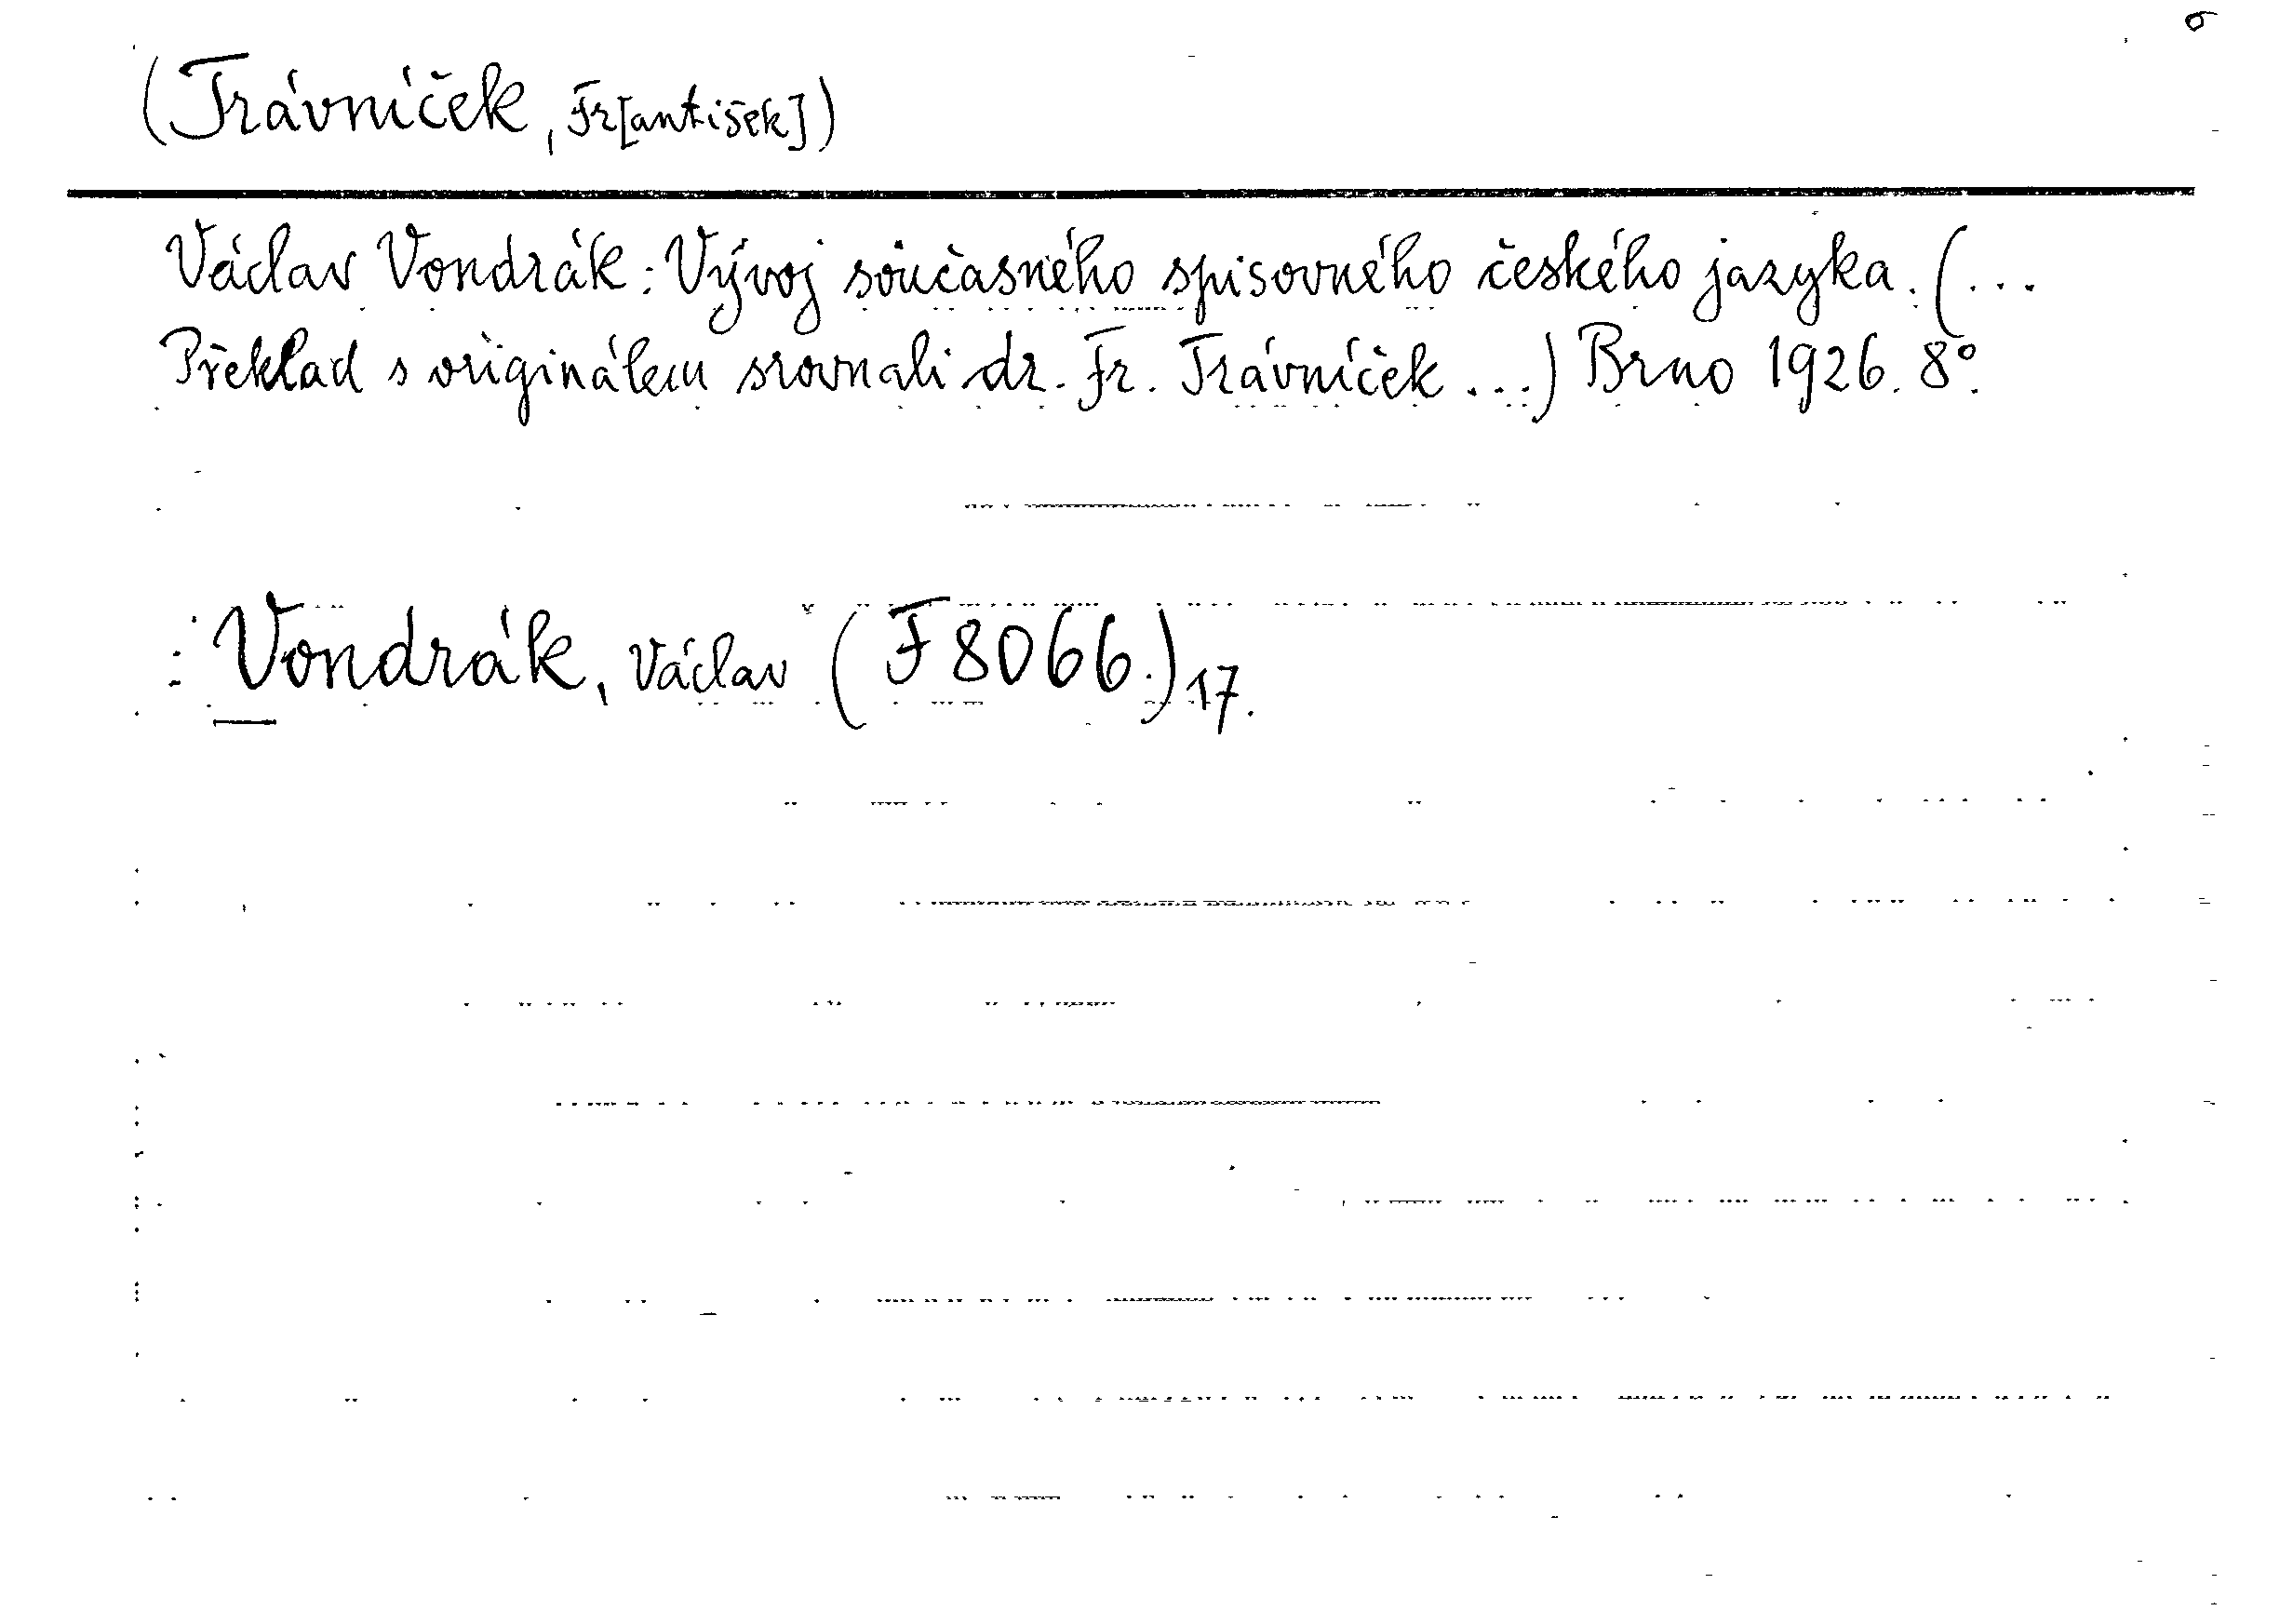 (Trávníček, Fr[antišek])
Václav Vondrák: Vývoj současného spisovného českého jazyka. (...
Překlad s originálem srovnali dr. Fr. Trávníček ...) Brno 1926. 8°.
: Vondrák, Václav (F 8066.) 17.